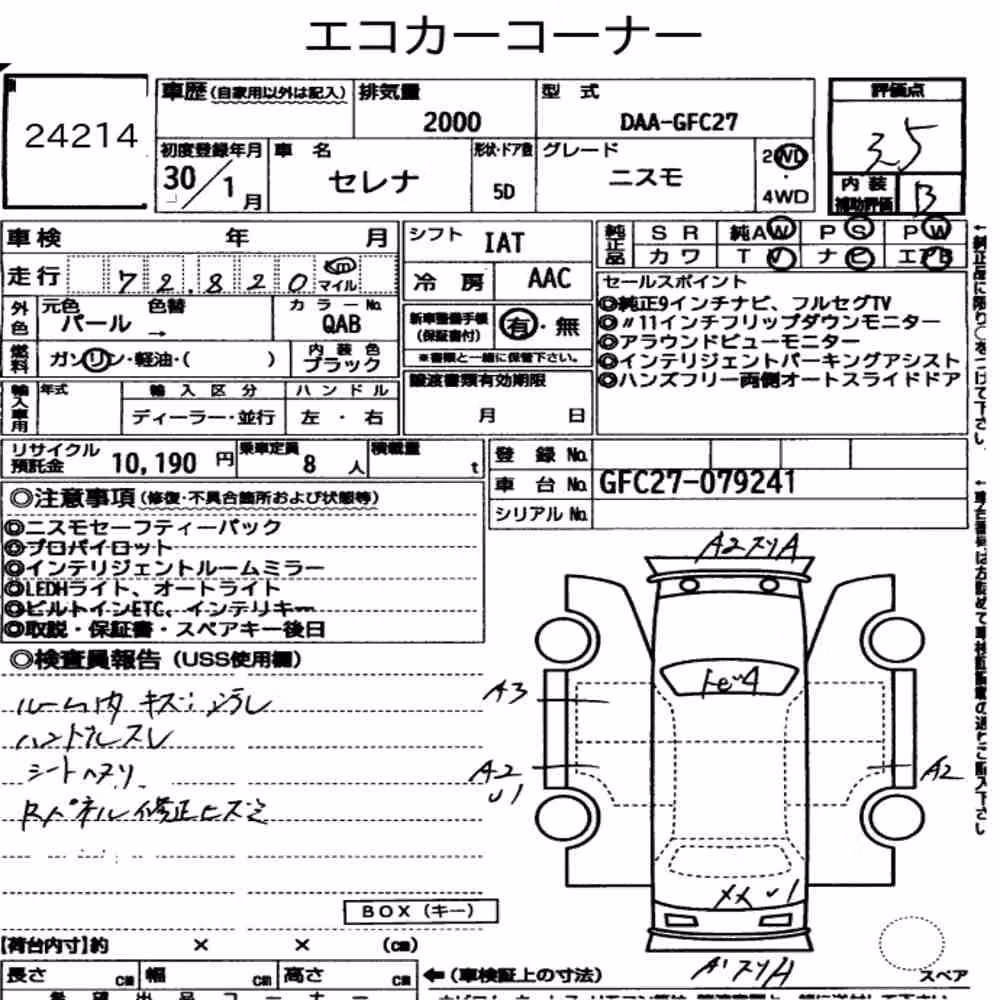 エコカーコーナー
24214
車歴(自家用以外は記入)
排気量
2000
型 式
DAA-GFC27
評価点
3.5
初度登録年月
30/1月
車 名
セレナ
形状・ドア数
5D
グレード
ニスモ
2WD
・
4WD
内 装
補助評価
B
車検 年 月
シフト IAT
純正品
SR 純AW PS PW
カワ TV ナビ エアB
走行 72,820 km マイル
冷 房 AAC
セールスポイント
◎純正9インチナビ、フルセグTV
◎〃11インチフリップダウンモニター
◎アラウンドビューモニター
◎インテリジェントパーキングアシスト
◎ハンズフリー両側オートスライドドア
外色
元色 色替
パール →
カラーNo.
QAB
新車整備手帳
(保証書付)
有・無
※書類と一緒に保管下さい。
燃料
ガソリン・軽油・( )
内装色
ブラック
譲渡書類有効期限
月 日
輸入車用
年式
輸入区分
ディーラー・並行
ハンドル
左・右
リサイクル
預託金
10,190 円
乗車定員
8 人
積載量
t
登 録 No.
車 台 No. GFC27-079241
シリアル No.
◎注意事項(修復・不具合箇所および状態等)
◎ニスモセーフティーパック
◎プロパイロット
◎インテリジェントルームミラー
◎LEDHライト、オートライト
◎ビルトインETC、インテリキー
◎取説・保証書・スペアキー後日
◎検査員報告(USS使用欄)
ルーム内 キズ
ハンドルスレ
シートヘタリ
Rパネル修正ヒズミ
A2スリA
A3
A2
U1
A2
U1
A1スリA
BOX(キー)
【荷台内寸】約 × × (cm)
長さ cm 幅 cm 高さ cm
←(車検証上の寸法)
スペア
希望出品コーナー